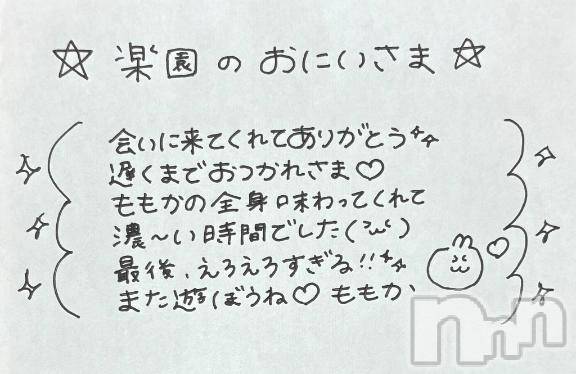 ☆ 楽園のおにいさま ☆
会いに来てくれてありがとう
遅くまでおつかれさま♡
ももかの全身味わってくれて
濃〜い時間でした( ᷇ᵕ ᷆ )
最後、えろえろすぎる!!
また遊ぼうね♡ ももか、
nnn